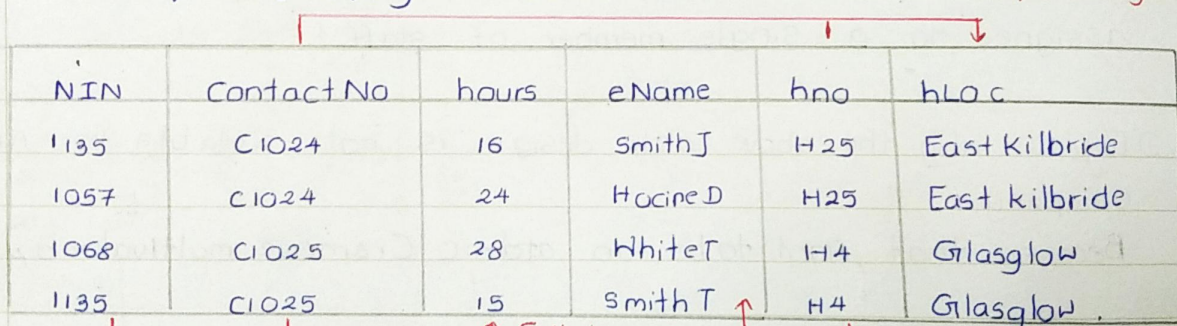 NIN ContactNo hours eName hno hLoc
1135 C1024 16 SmithJ H25 East Kilbride
1057 C1024 24 HocineD H25 East kilbride
1068 C1025 28 WhiteT H4 Glasglow
1135 C1025 15 SmithT H4 Glasglow.